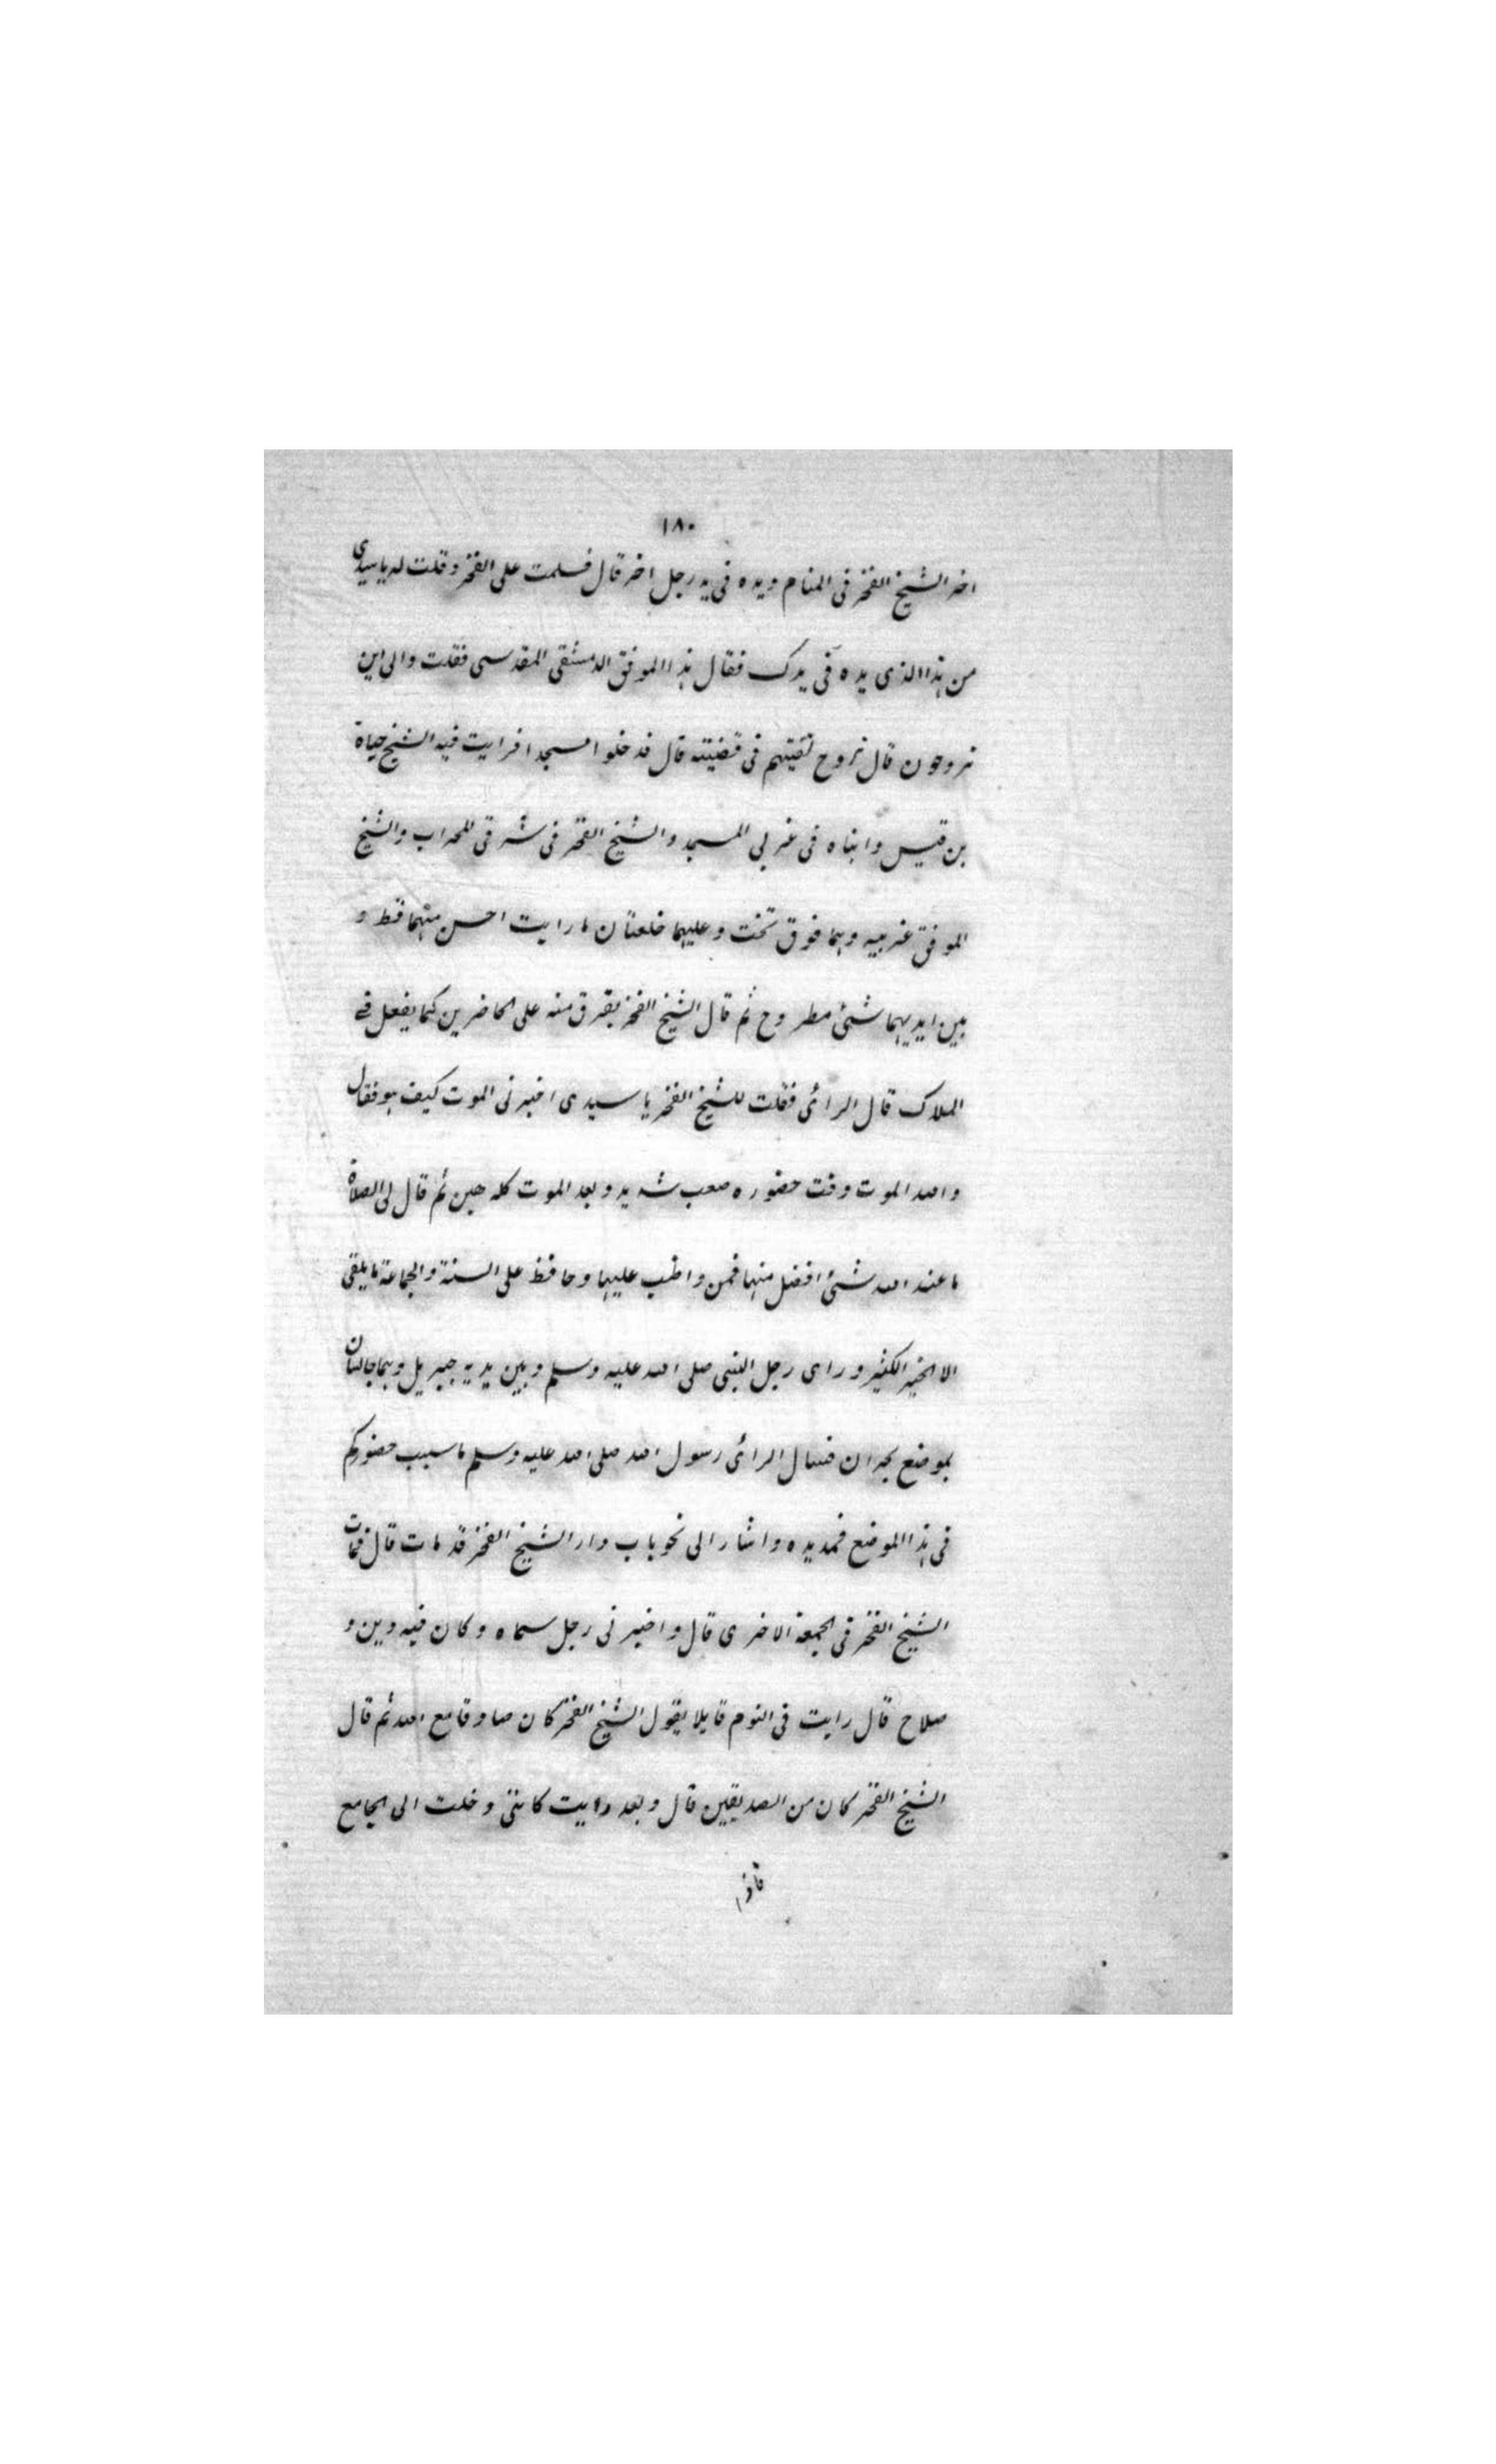 ١٨٠
اخر الشيخ الفخر فى المنام ويده فى يد رجل اخر قال فسلمت على الفخر وقلت له يا سيدى
من هذا الذى يده فى يدك فقال هذا الموفق الدمشقى المقدسى فقلت والى اين
تروحون قال نروح نقيتهم فى قضيته قال فدخلوا مسجدا فرايت فيه الشيخ حياة
بن قيس وابناه فى غربى المسجد والشيخ الفخر فى شرقى المحراب والشيخ
الموفق غربيه وهما فوق تخت وعليهما خلعتان ما رايت احسن منهما قط و
بين ايديهما شئ مطروح ثم قال الشيخ الفخر يفرق منه على الحاضرين كما يفعل فى
الملاك قال الرائى فقلت للشيخ الفخر يا سيدى اخبرنى الموت كيف هو فقال
والله الموت وقت حضوره صعب شديد وبعد الموت كله هين ثم قال لى الصلاة
ما عند الله شئ افضل منها فمن واظب عليها وحافظ على السنة والجماعة ما يلقى
الا الخير الكثير وراى رجل النبى صلى الله عليه وسلم وبين يديه جبريل وهما جالسان
بموضع بحران فسال الرائى رسول الله صلى الله عليه وسلم ما سبب حضوركم
فى هذا الموضع فمد يده واشار الى نحو باب دار الشيخ الفخر قد مات قال فمات
الشيخ الفخر فى الجمعة الاخرى قال واخبرنى رجل سماه وكان فيه دين و
صلاح قال رايت فى النوم قايلا يقول الشيخ الفخر كان صادقا مع الله ثم قال
الشيخ الفخر كان من الصديقين قال وبعد رايت كاننى دخلت الى الجامع